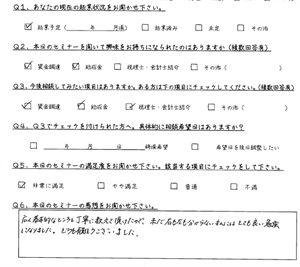 Q１、あなたの現在の起業状況をお聞かせ下さい。
☑ 起業予定（　　年　　月頃）　□ 起業済み　□ 未定　□ その他
Q２、本日のセミナーを聞いて興味をお持ちになられたのはありますか（複数回答有）
☑ 資金調達　☑ 助成金　□ 税理士・会計士紹介　□ その他（　　）
Q３、今後相談してみたい項目はありますか。ある方は下の項目にチェックしてください。（複数回答有）
☑ 資金調達　☑ 助成金　☑ 税理士・会計士紹介　□ その他（　　）
Q４、Q３でチェックを付けられた方へ。具体的に相談希望日はありますか？
□ 　　年　　月　　日　　時頃希望　□ 希望日を後日調整したい
Q５、本日のセミナーの満足度をお聞かせ下さい。該当する項目にチェックをして下さい。
☑ 非常に満足　□ やや満足　□ 普通　□ 不満
Q６、本日のセミナーの感想をお聞かせ下さい。
丁寧に教えて頂けたので、まだ右も左も分からない私には とても良い勉強
になりました。ありがとうございました。